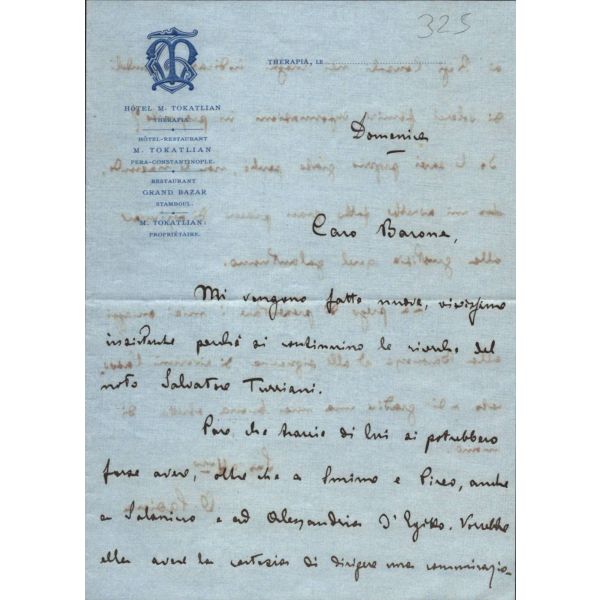 325
THERAPIA, LE
HÔTEL M. TOKATLIAN
THÉRAPIA.
HÔTEL-RESTAURANT
M. TOKATLIAN
PERA-CONSTANTINOPLE.
RESTAURANT
GRAND BAZAR
STAMBOUL.
M. TOKATLIAN
PROPRIÉTAIRE.
Domenica
Caro Barone,
Mi vengono fatte nuove, vivissime
insistenze perché si continuino le ricerche del
noto Salvatore Turriani.
Pare che traccie di lui si potrebbero
forse avere, oltre che a Smirne e Pireo, anche
a Salonicco e ad Alessandria d'Egitto. Vorrebbe
ella avere la cortesia di dirigere una comunicazio-